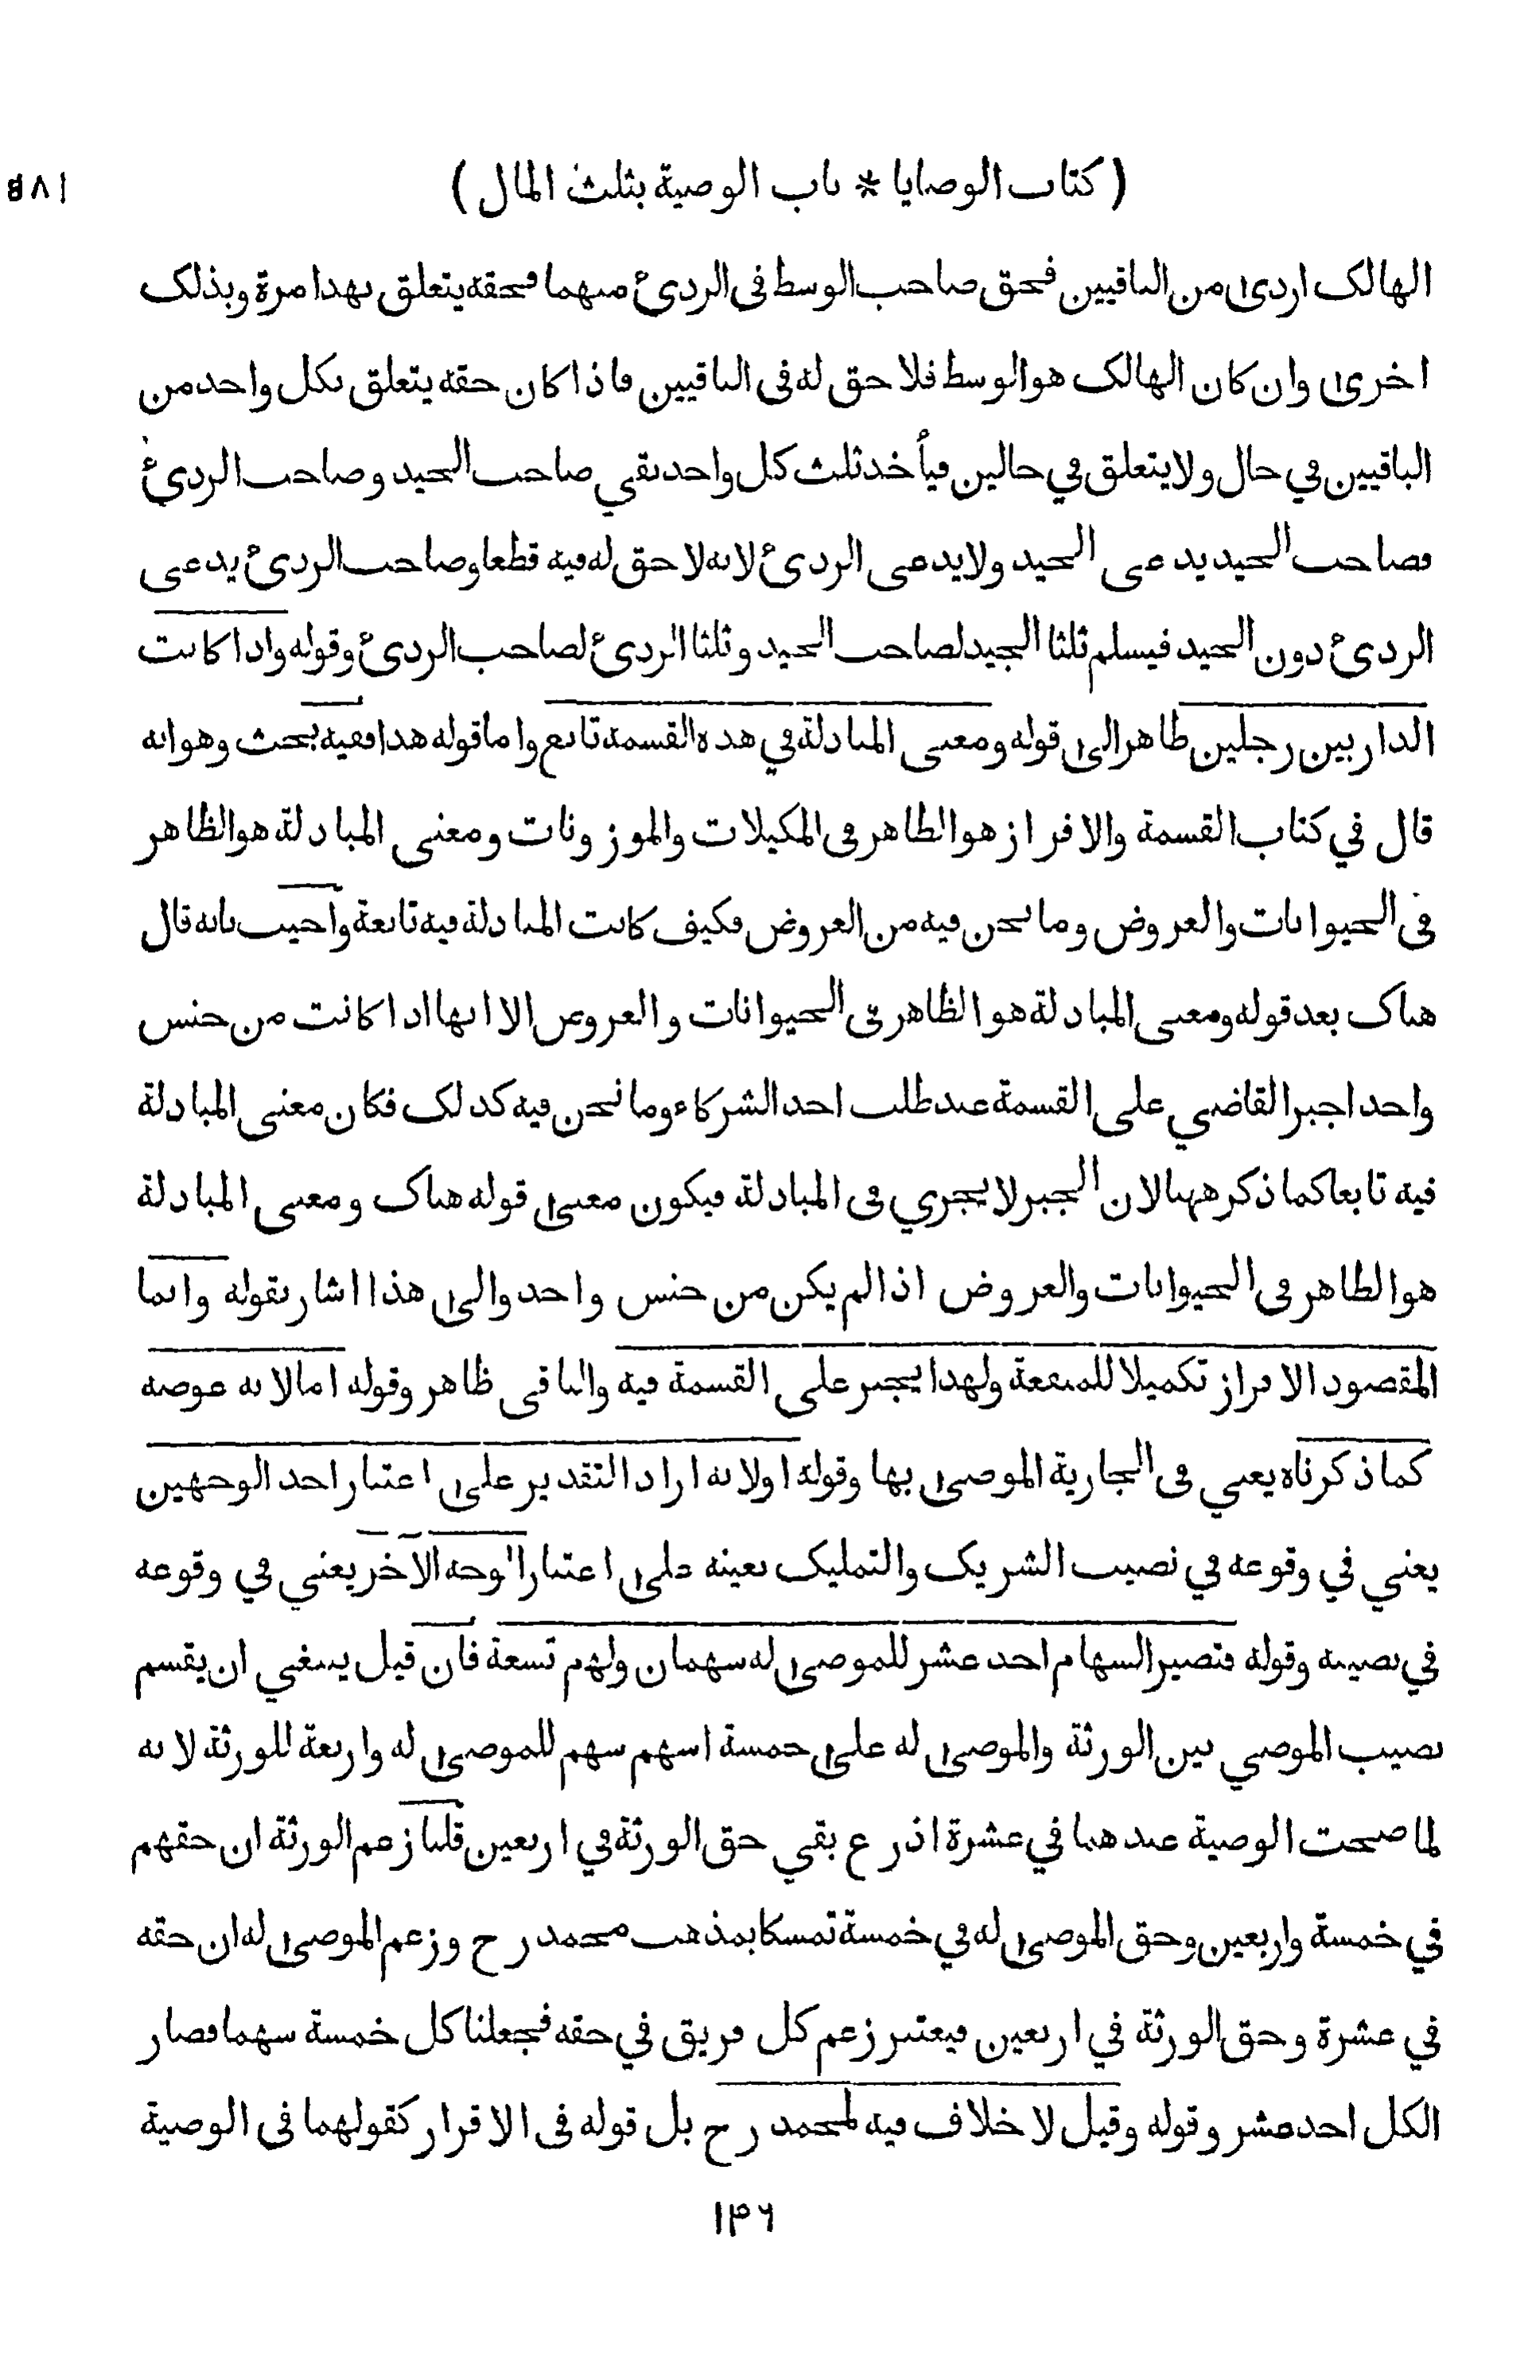 ( كتاب الوصايا * باب الوصية بثلث المال )
الهالك اردى من الباقيين فحق صاحب الوسط فى الردئ منهما فحقه يتعلق بهذا مرة وبذلك
اخرى وان كان الهالك هو الوسط فلا حق له فى الباقيين فاذا كان حقه يتعلق بكل واحد من
الباقيين في حال ولا يتعلق في حالين فيأخذ ثلث كل واحد بقي صاحب الجيد وصاحب الردئ
فصاحب الجيد يدعى الجيد ولا يدعى الردئ لانه لا حق له فيه قطعا وصاحب الردئ يدعى
الردئ دون الجيد فيسلم ثلثا الجيد لصاحب الجيد وثلثا الردئ لصاحب الردئ وقوله واذا كانت
الدار بين رجلين ظاهر الى قوله ومعنى المبادلة في هذه القسمة تابع واما قوله هذا ففيه بحث وهو انه
قال في كتاب القسمة والافراز هو الظاهر فى المكيلات والموزونات ومعنى المبادلة هو الظاهر
فى الحيوانات والعروض وما نحن فيه من العروض فكيف كانت المبادلة فيه تابعة واجيب بانه قال
هناك بعد قوله ومعنى المبادلة هو الظاهر فى الحيوانات والعروض الا انها اذا كانت من جنس
واحد اجبر القاضي على القسمة عند طلب احد الشركاء وما نحن فيه كذلك فكان معنى المبادلة
فيه تابعا كما ذكر ههنا لان الجبر لا يجري فى المبادلة فيكون معنى قوله هناك ومعنى المبادلة
هو الظاهر فى الحيوانات والعروض اذا لم يكن من جنس واحد والى هذا اشار بقوله وانما
المقصود الافراز تكميلا للمنفعة ولهذا يجبر على القسمة فيه والباقى ظاهر وقوله اما لانه عوضه
كما ذكرناه يعني فى الجارية الموصى بها وقوله اولانه اراد التقدير على اعتبار احد الوجهين
يعني في وقوعه في نصيب الشريك والتمليك بعينه على اعتبار الوجه الآخر يعني في وقوعه
في نصيبه وقوله فتصير السهام احد عشر للموصى له سهمان ولهم تسعة فان قيل ينبغي ان يقسم
نصيب الموصي بين الورثة والموصى له على خمسة اسهم سهم للموصى له واربعة للورثة لانه
لما صحت الوصية عندهما في عشرة اذرع بقي حق الورثة في اربعين قلنا زعم الورثة ان حقهم
في خمسة واربعين وحق الموصى له في خمسة تمسكا بمذهب محمد رح وزعم الموصى له ان حقه
في عشرة وحق الورثة في اربعين فيعتبر زعم كل فريق في حقه فجعلنا كل خمسة سهما فصار
الكل احد عشر وقوله وقيل لا خلاف فيه لمحمد رح بل قوله فى الاقرار كقولهما فى الوصية